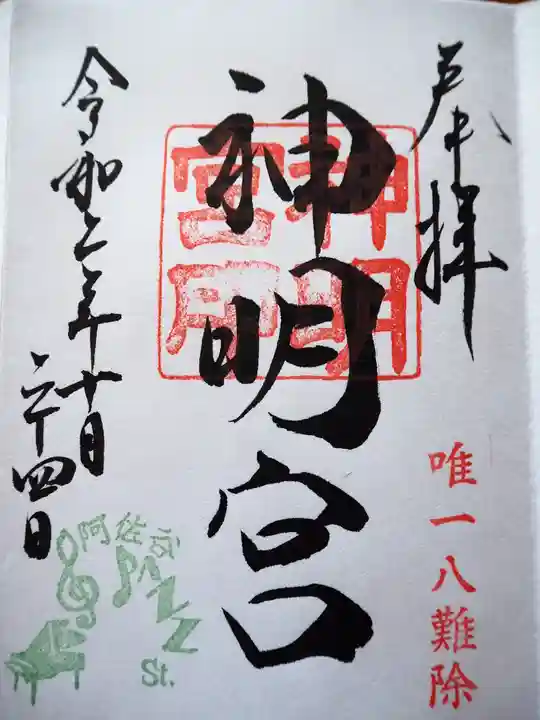 奉拝
唯一八難除
神明宮
神明
宮印
令和二年十月
二十四日
阿佐谷
JAZZ
St.